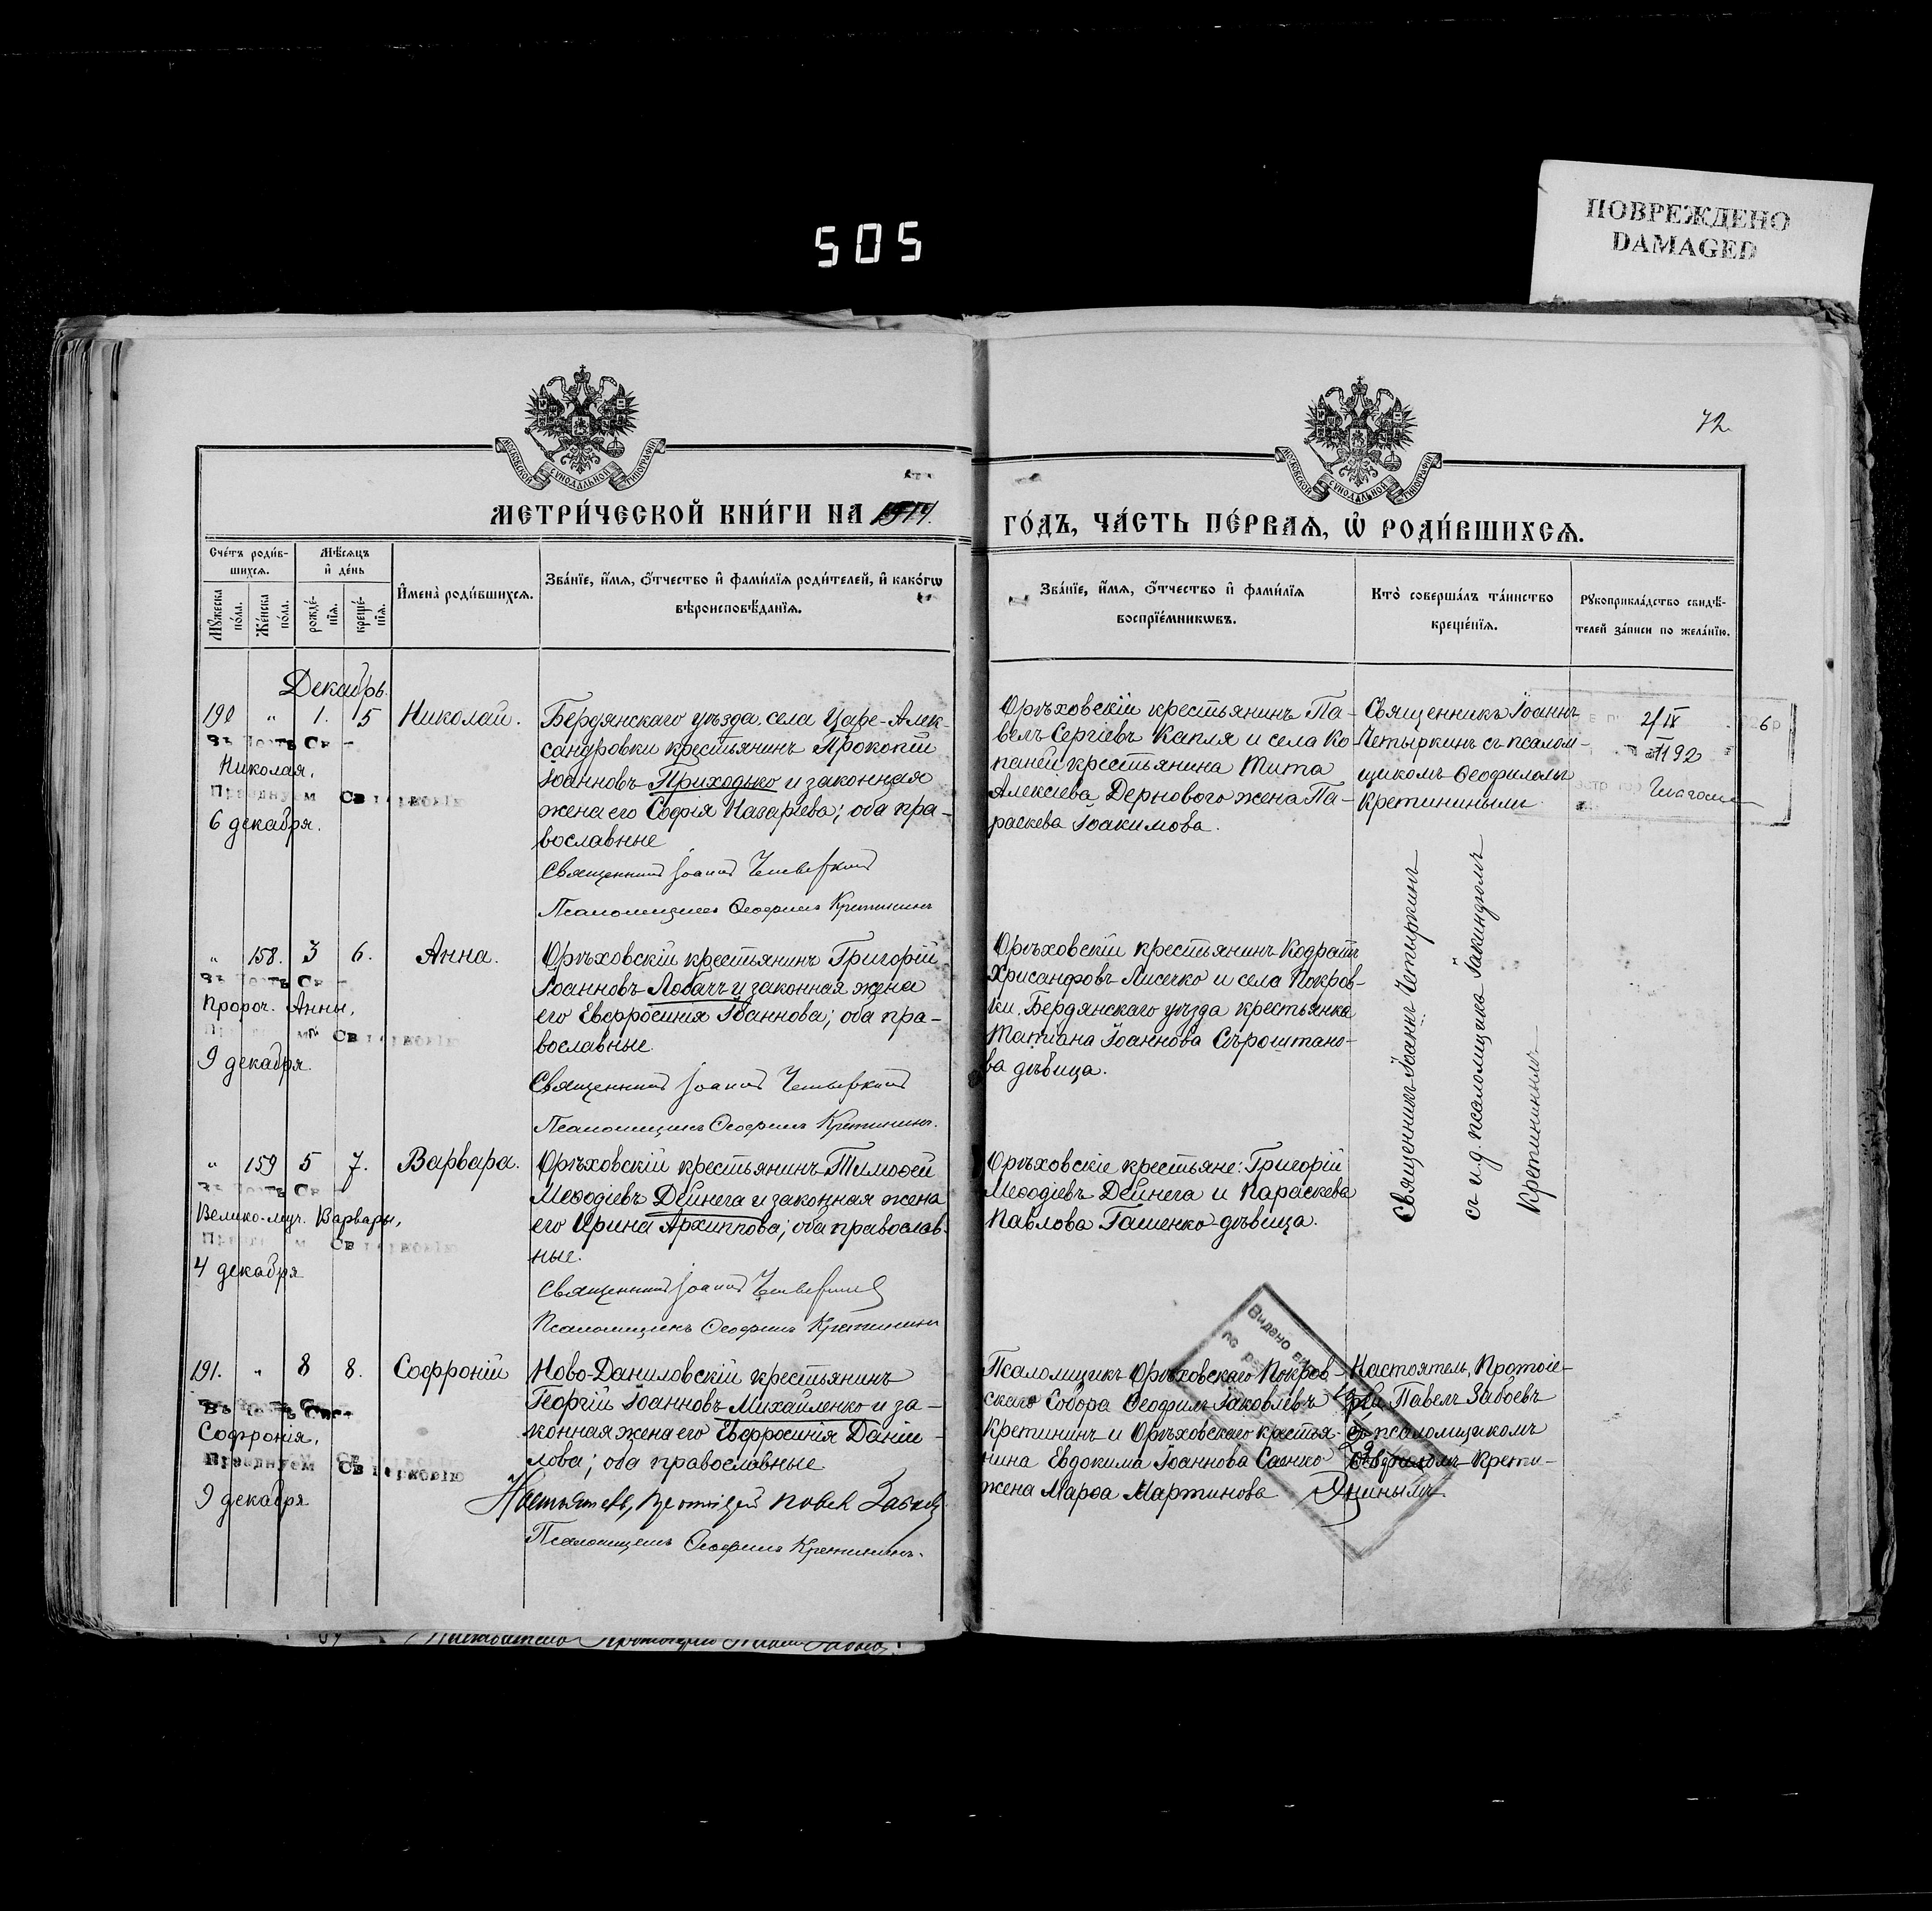 ПОВРЕЖДЕНО
DAMAGED
505
72
МОСКОВСКОЙ СѴНОДАЛЬНОЙ ТИПОГРАФІИ
МОСКОВСКОЙ СѴНОДАЛЬНОЙ ТИПОГРАФІИ
МЕТРИ́ЧЕСКОЙ КНИ́ГИ НА 1914.
ГО́ДЪ, ЧА́СТЬ ПЕ́РВАѦ, Ѡ҆ РОДИ́ВШИХСѦ.
Сче́тъ роди́в-
шихсѧ.
Мꙋ́жеска по́ла.
Же́нска по́ла.
Мѣ́сѧцъ
и҆ де́нь
рожде́-
нїѧ.
креще́-
нїѧ.
И҆мена̀ роди́вшихсѧ.
Зва́нїе, и҆́мѧ, ѻ҆́тчество и҆ фами́лїѧ роди́телей, и҆ како́гѡ
вѣроисповѣ́данїѧ.
Зва́нїе, и҆́мѧ, ѻ҆́тчество и҆ фами́лїѧ
воспрїе́мникѡвъ.
Кто̀ соверша́лъ та́инство
креще́нїѧ.
Рꙋкоприкла́дство свидѣ́-
телей за́писи по жела́нїю.
Декабрь.
190 " 1. 5 Николай.
Въ честь Св
Николая,
Празднуем Св церковію
6 декабря.
Бердянскаго уѣзда села Царе-Алек-
сандровки крестьянинъ Прокопій
Іоанновъ Приходько и законная
жена его Софія Назаріева; оба пра-
вославные
Священникъ Іоаннъ Четыркинъ
Псаломщикъ Ѳеофилъ Кретининъ
Орѣховскій крестьянинъ Па-
велъ Сергіевъ Капля и села Ко-
паней крестьянина Тита
Алексіева Дернового жена Па-
раскева Іоакимова.
Священникъ Іоаннъ
Четыркинъ съ псалом-
щикомъ Ѳеофиломъ
Кретининымъ
2/IX
192 6
" 158. 3 6. Анна.
Въ честь Св
Пророч. Анны,
Св церковію
9 декабря.
Орѣховскій крестьянинъ Григорій
Іоанновъ Лобачъ и законная жена
его Евфросинія Іоаннова; оба пра-
вославные.
Священникъ Іоаннъ Четыркинъ
Псаломщикъ Ѳеофилъ Кретининъ.
Орѣховскій крестьянинъ Кодратъ
Хрисанфовъ Лисечко и села Покров-
ки, Бердянскаго уѣзда крестьянка
Татіана Іоаннова Сѣроштано-
ва дѣвица.
Священникъ Іоаннъ Четыркинъ
съ и.д. псаломщика Іакиндомъ
Кретининымъ
" 159 5 7. Варвара.
Въ честь Св
Велико-муч. Варвары,
Св церковію
4 декабря
Орѣховскій крестьянинъ Тимоѳей
Меѳодіевъ Дейнега и законная жена
его Ирина Архиппова; оба православ-
ные.
Священникъ Іоаннъ Четыркинъ
Псаломщикъ Ѳеофилъ Кретининъ
Орѣховскіе крестьяне: Григорій
Меѳодіевъ Дейнега и Параскева
Павлова Гашенко-дѣвица.
191. " 8 8. Софроній
Въ честь Свят
Софронія,
Празднуем Св церковію
9 декабря
Ново-Даниловскій крестьянинъ
Георгій Іоанновъ Михайленко и за-
конная жена его Евфросинія Даніи-
лова; оба православные
Настоятель, Протоіерей Павелъ Забоевъ
Псаломщикъ Ѳеофилъ Кретининъ.
Псаломщикъ Орѣховскаго Покров-
скаго Собора Ѳеофилъ Іаковлевъ
Кретининъ и Орѣховскаго крестья-
нина Евдокима Іоаннова Сачко
жена Марѳа Мартинова
Настоятель, Протоіе-
рей Павелъ Забоевъ
съ псаломщикомъ
Ѳеофиломъ Крети-
нинымъ
Видано